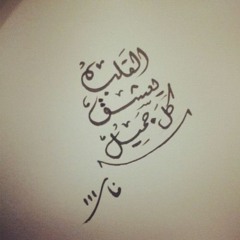 القَلب
يعشق
كلَ جَمِيل